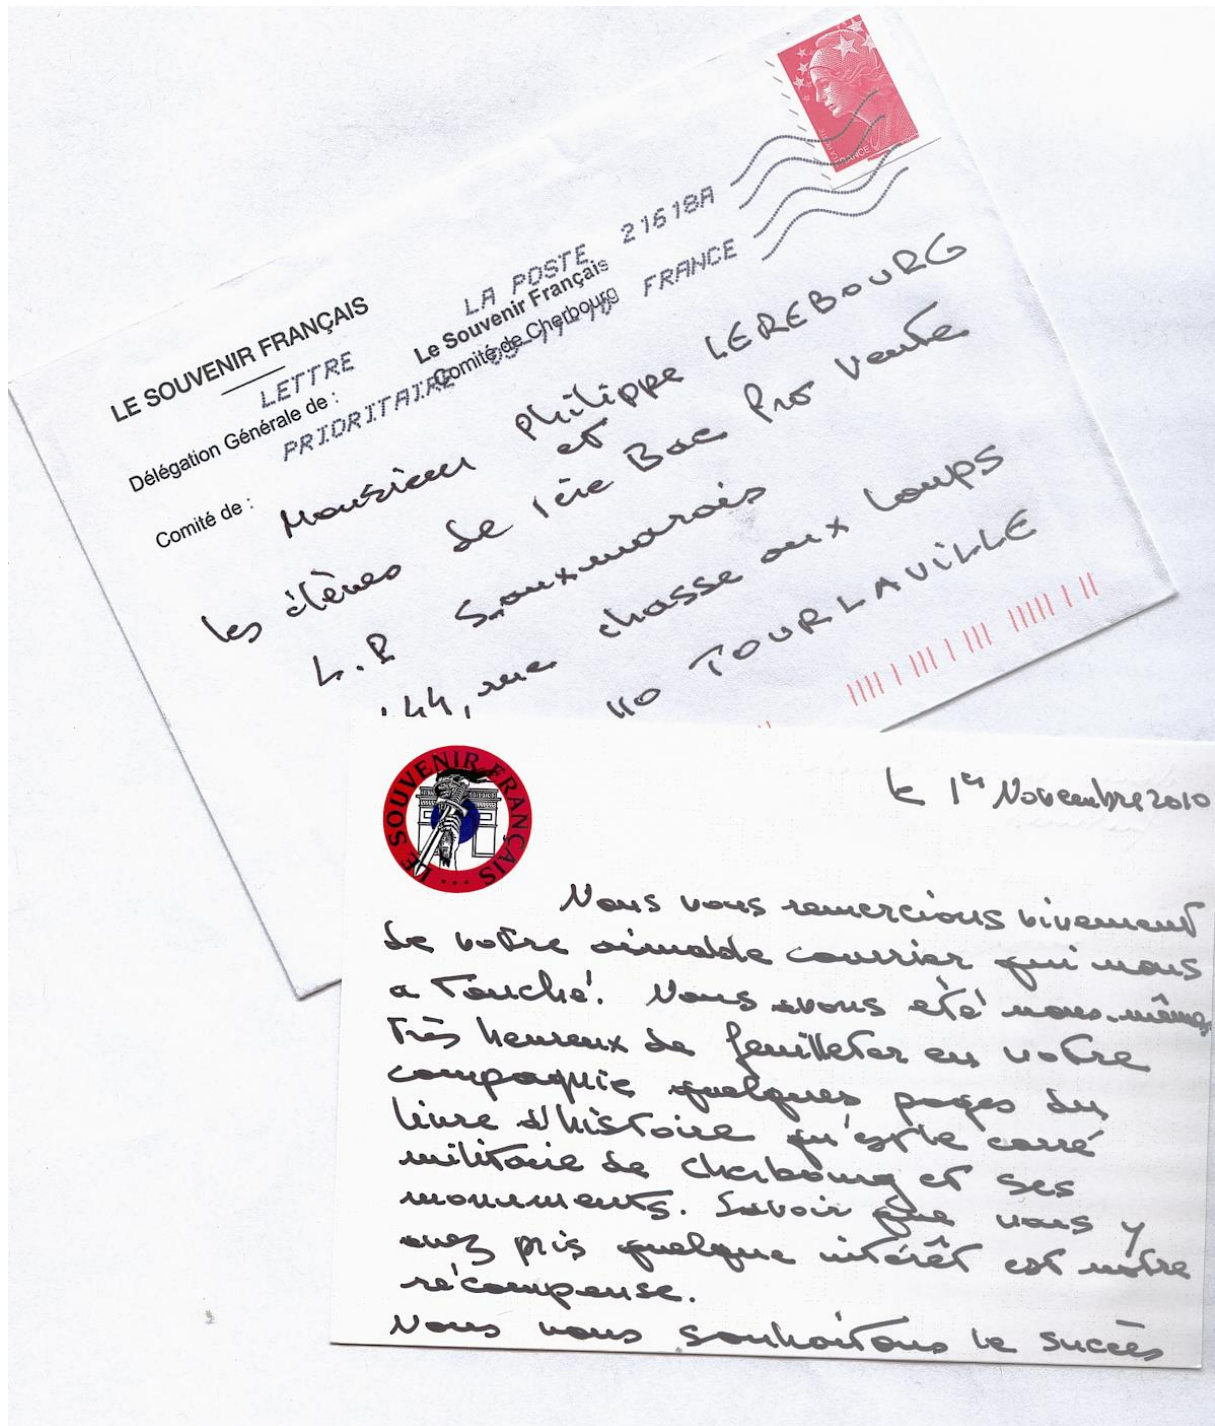 FRANCE
LA POSTE 21618A
LE SOUVENIR FRANÇAIS
LETTRE
Le Souvenir Français
FRANCE
Délégation Générale de :
PRIORITAIRE
Comité de Cherbourg
Comité de :
Monsieur Philippe LEREBOURG
et
les élèves de 1ère Bac Pro Vente
L.P Sauxmarais
44, rue chasse aux Loups
110 TOURLAVILLE
LE SOUVENIR FRANÇAIS ...
le 1er Novembre 2010
Nous vous remercions vivement
de votre aimable courrier qui nous
a touché. Nous avons été nous-mêmes
très heureux de feuilleter en votre
compagnie quelques pages du
livre d'histoire qu'est le carré
militaire de Cherbourg et ses
monuments. Savoir que vous y
avez pris quelque intérêt est notre
récompense.
Nous vous souhaitons le succès